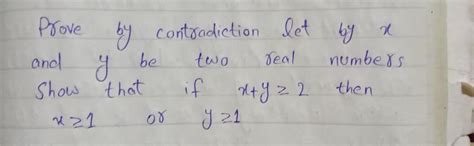 Prove by contradiction let by x
and y be two real numbers
Show that if x+y ≥ 2 then
x ≥ 1 or y ≥ 1